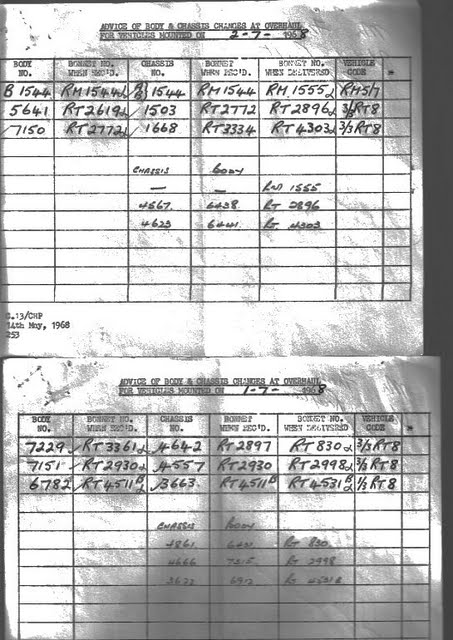 ADVICE OF BODY & CHASSIS CHANGES AT OVERHAUL
FOR VEHICLES MOUNTED ON 2-7- 1968
BODY NO. BONNET NO. WHEN REC'D. CHASSIS NO. BONNET WHEN REC'D. BONNET NO. WHEN DELIVERED VEHICLE CODE
B 1544 RM 1544 1544 RM 1544 RM 1555 RM5/7
5641 RT2619 1503 RT2772 RT2896 3/3RT8
7150 RT2772 1668 RT3334 RT4303 3/3RT8
CHASSIS BODY
— — RM 1555
4567 6438 RT 2896
4623 6441 RT 4303
C.13/CHP
14th May, 1968
253
ADVICE OF BODY & CHASSIS CHANGES AT OVERHAUL
FOR VEHICLES MOUNTED ON 1-7- 1968
BODY NO. BONNET NO. WHEN REC'D. CHASSIS NO. BONNET WHEN REC'D. BONNET NO. WHEN DELIVERED VEHICLE CODE
7229 RT3361 4642 RT2897 RT830 3/3RT8
7151 RT2930 4557 RT2930 RT2998 3/3RT8
6782 RT4511B 3663 RT4511B RT4531B 1/3RT8
CHASSIS BODY
4861 6431 RT 830
4666 7315 RT 2998
3622 6912 RT 4531B